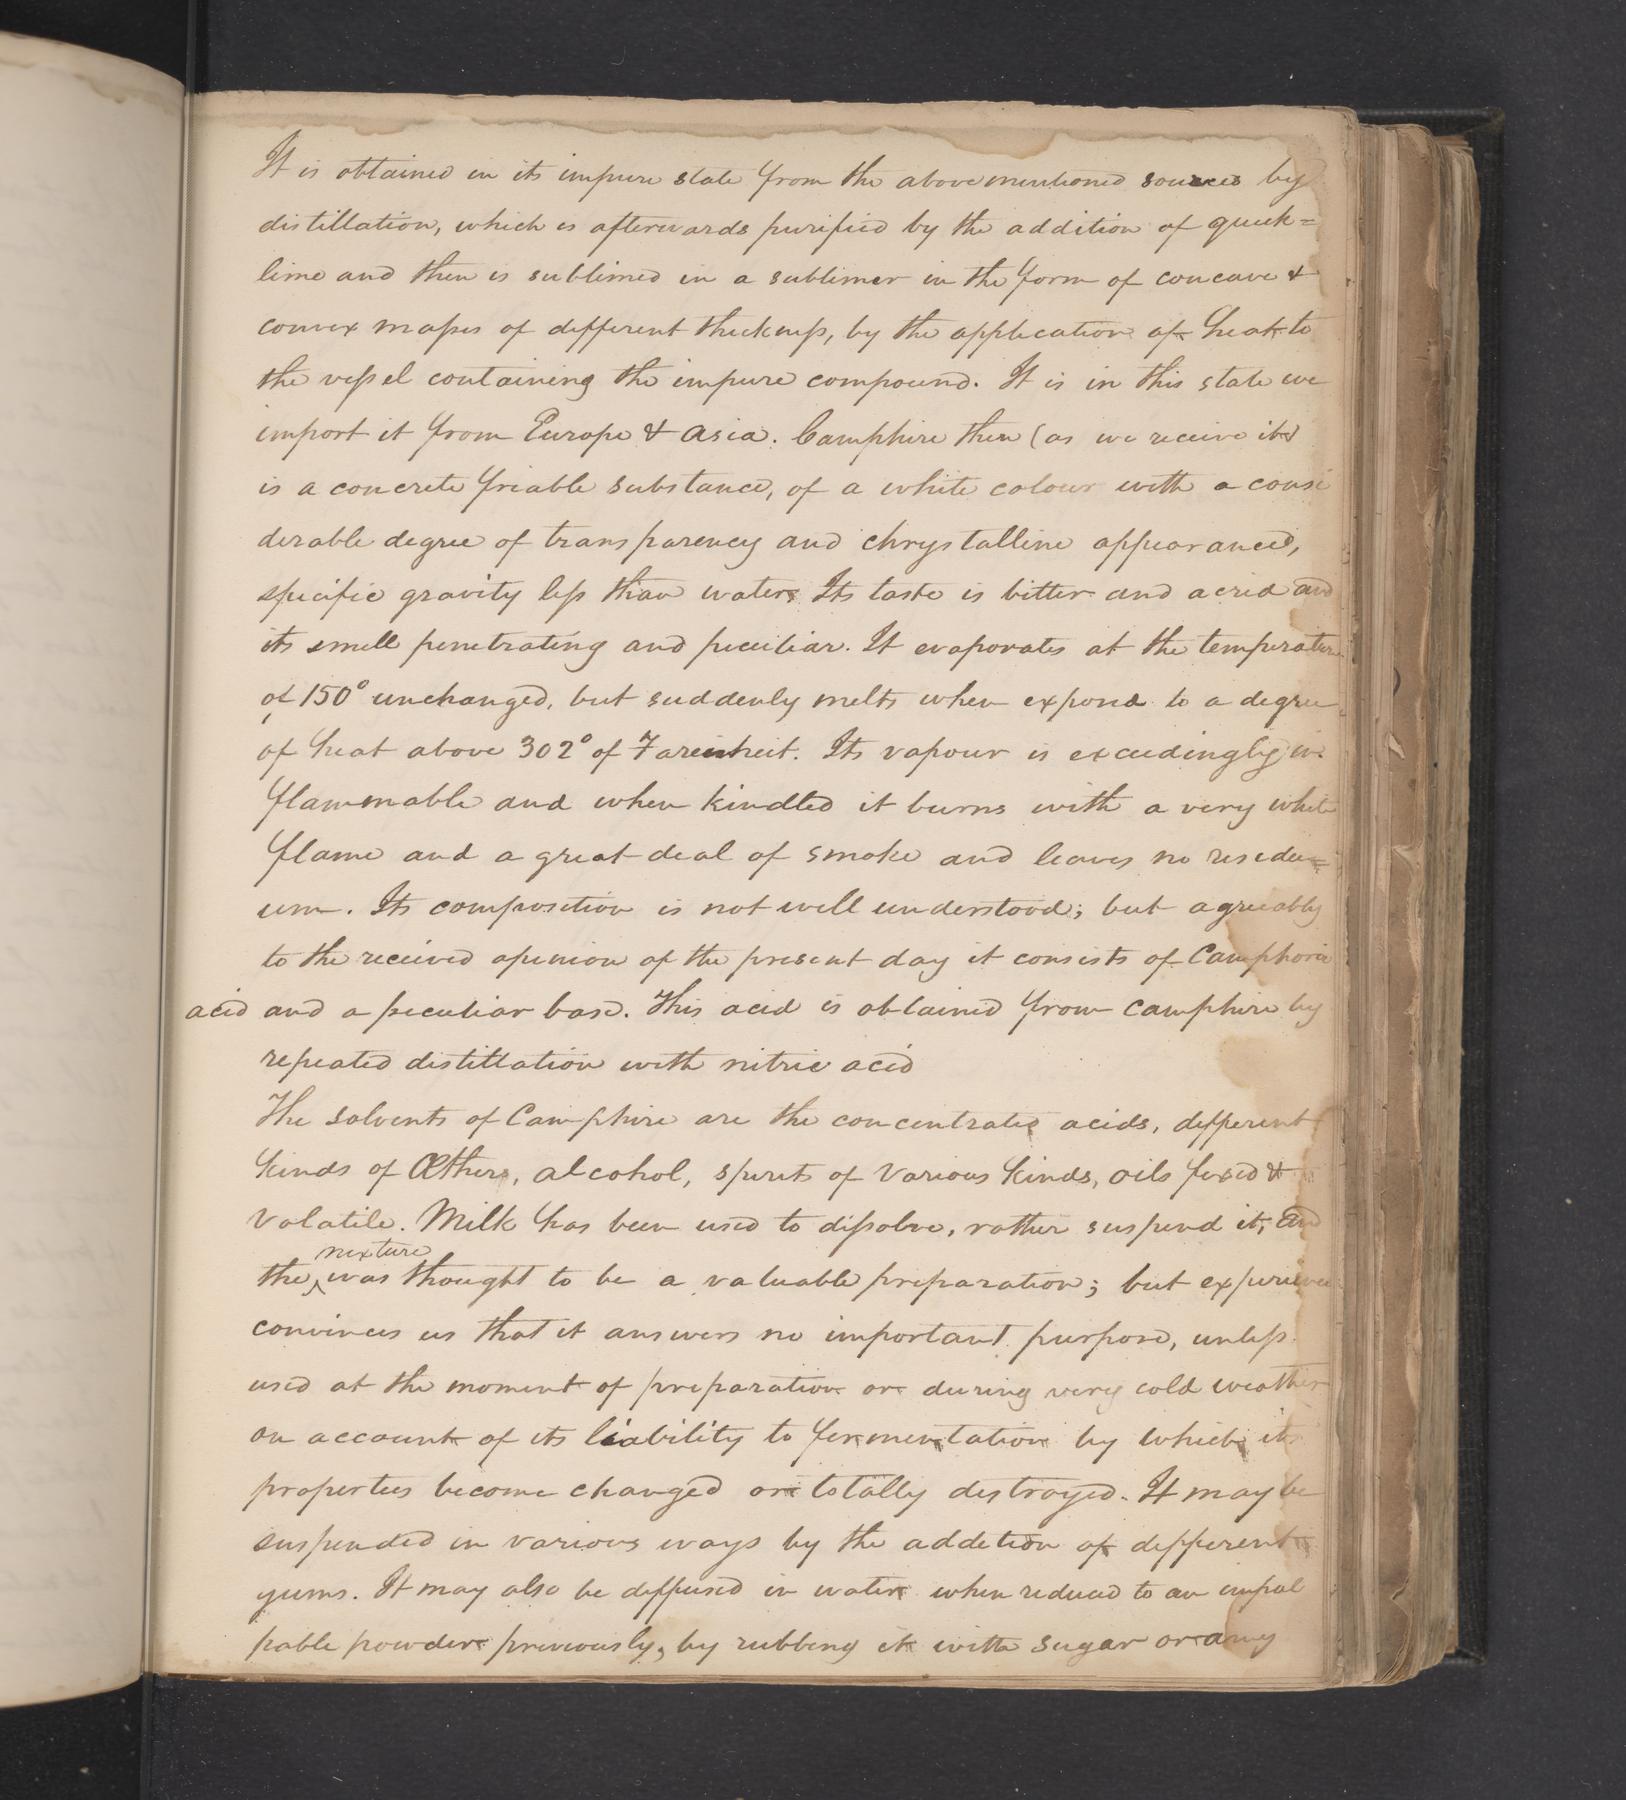 It is obtained in its impure state from the abovementioned sources by
distillation, which is afterwards purified by the addition of quick=
lime and then is sublimed in a sublimer in the form of concave &
convex masses of different thickness, by the application of heat to
the vessel containing the impure compound. It is in this state we
import it from Europe & Asia. Camphire then (as we receive it)
is a concrete friable substance, of a white colour with a consi
derable degree of transparency and chrystalline appearance,
specific gravity less than water. Its taste is bitter and acrid and
its smell penetrating and peculiar. It evaporates at the temperature
of 150° unchanged, but suddenly melts when exposed to a degree
of heat above 302° of Farenheit. Its vapour is exceedingly in
flammable and when kindled it burns with a very white
flame and a great deal of smoke and leaves no residu=
um. Its composition is not well understood; but agreeably
to the received opinion of the present day it consists of Camphoric
acid and a peculiar base. This acid is obtained from camphire by
repeated distillation with nitric acid
The solvents of Camphire are the concentrated acids, different
kinds of Æthers, alcohol, spirits of various kinds, oils fixed &
volatile. Milk has been used to dissolve, rather suspend it, and
mixture
the ‸ was thought to be a valuable preparation; but experience
convinces us that it answers no important purpose, unless
used at the moment of preparation or during very cold weather
on account of its liability to fermentation by which its
properties become changed or totally destroyed. It may be
suspended in various ways by the addition of different
gums. It may also be diffused in water when reduced to an impal
pable powder previously, by rubbing it with sugar or any